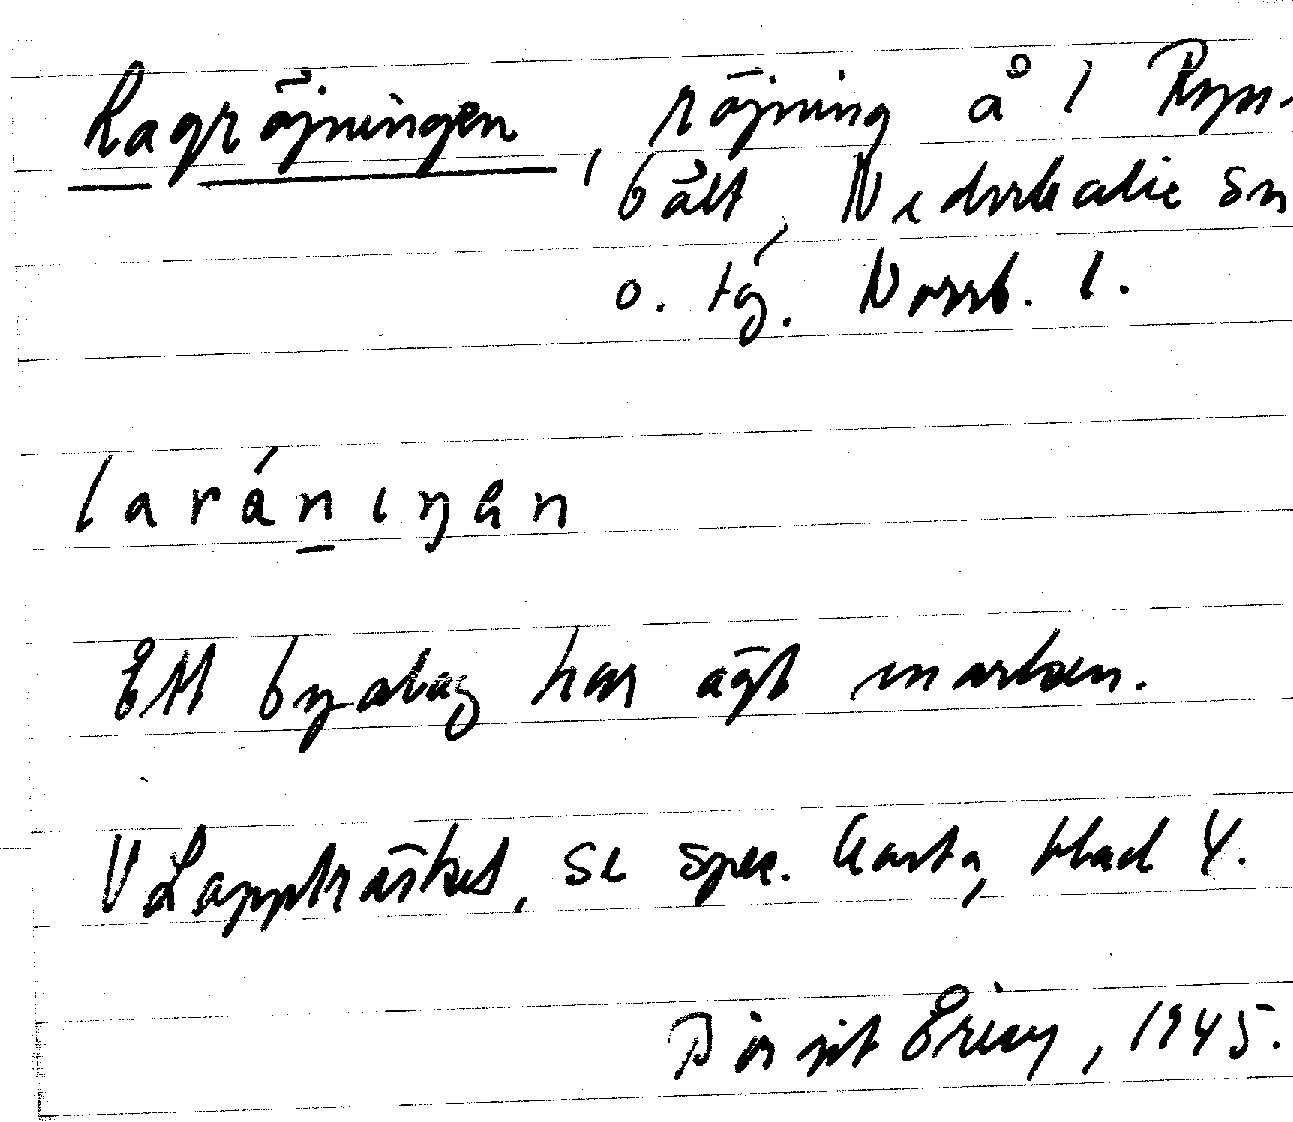 Lagröjningen, röjning å l Ryn-
bält, Nederkalix sn
o. tg. Norrb. l.
larániŋen
Ett byalag har ägt marken.
V Lappträsket, se spec. karta, blad 4.
Birgit Ericy, 1945.